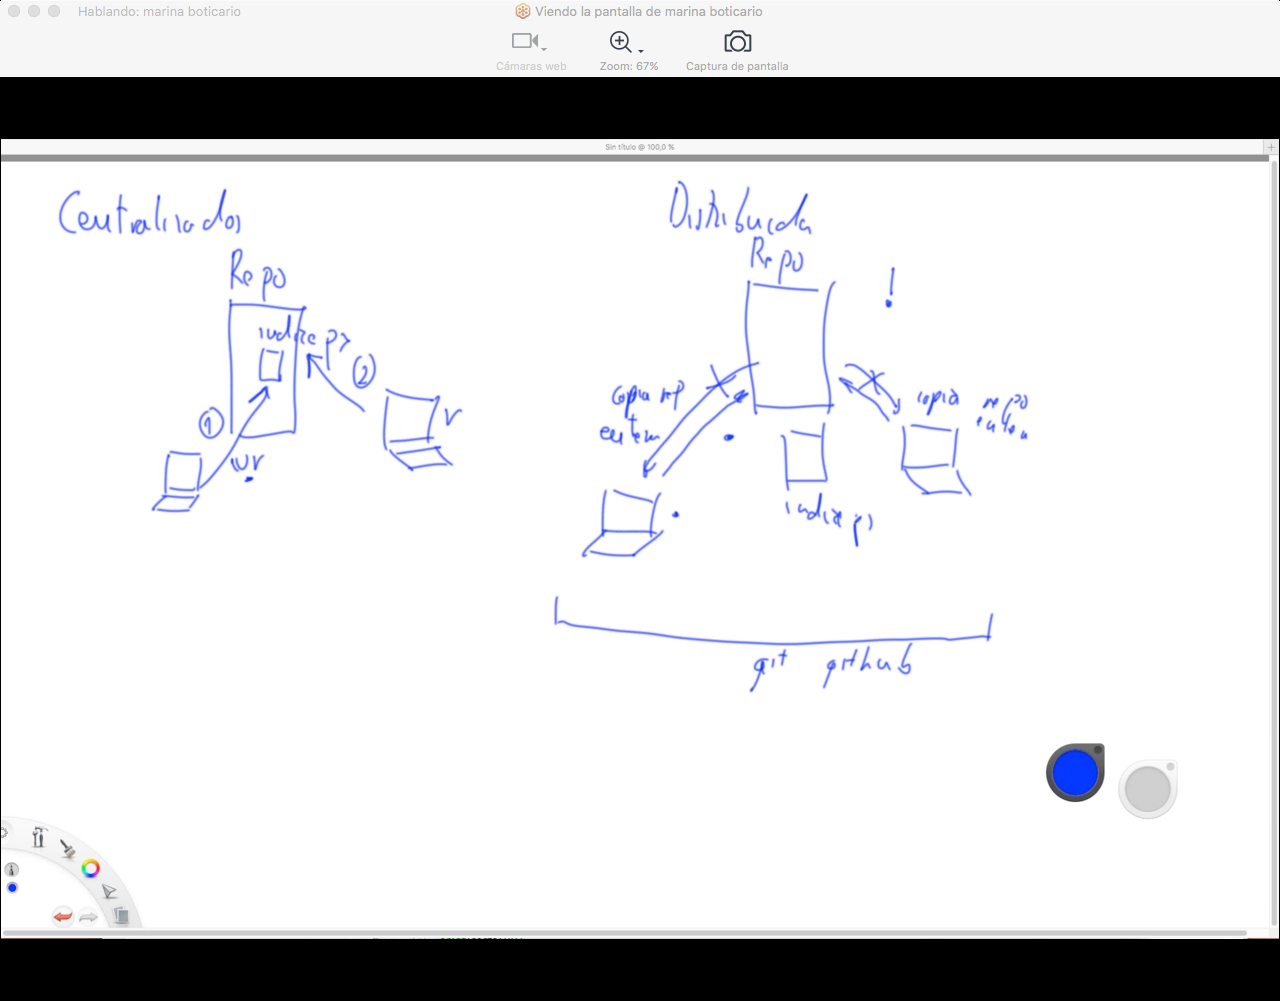 Hablando: marina boticario
Viendo la pantalla de marina boticario
Cámaras web
Zoom: 67%
Captura de pantalla
Sin título @ 100,0 %
Centralizados
Repo
1
2
wr
r
Distribuida
Repo
!
copia rep
copia repo
git github